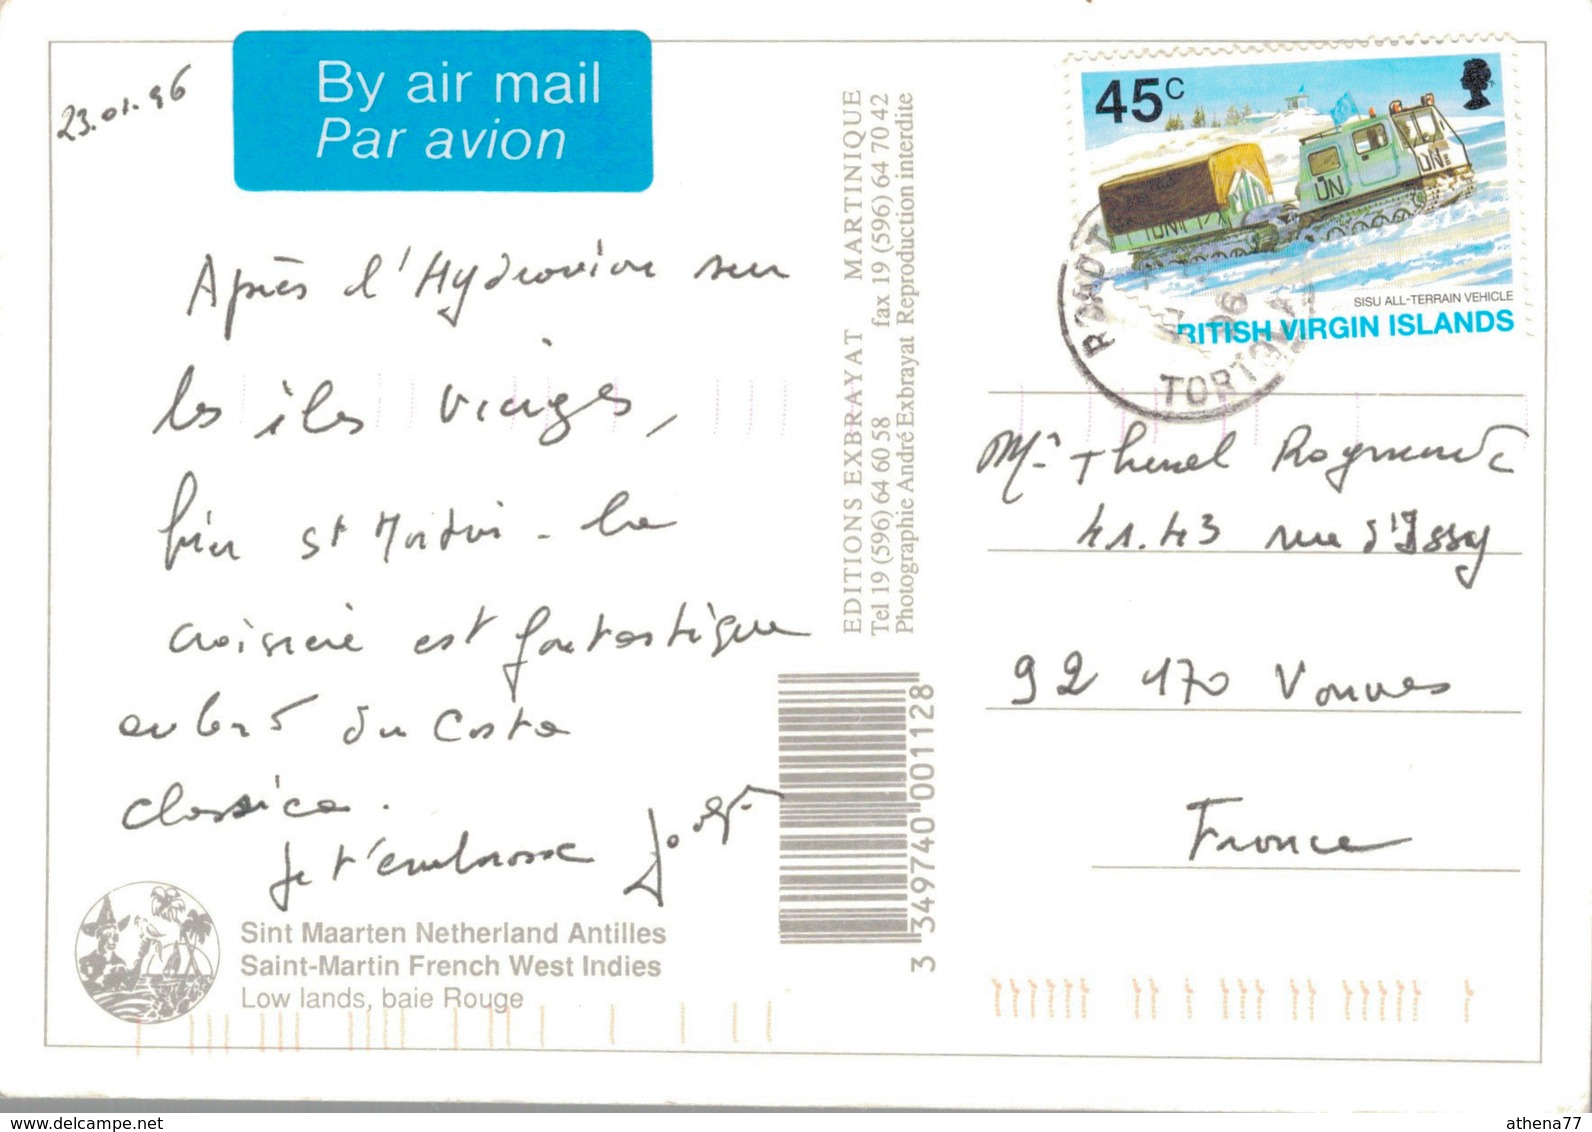 23.01.96
By air mail
Par avion
Après l'Hydravion sur
les îles vierges,
bien St Martin - la
croisière est fantastique
au bord du Costa
classica.
Je t'embrasse
Sint Maarten Netherland Antilles
Saint-Martin French West Indies
Low lands, baie Rouge
EDITIONS EXBRAYAT MARTINIQUE
Tel 19 (596) 64 60 58 fax 19 (596) 64 70 42
Photographie André Exbrayat Reproduction interdite
3 349740 001128
45c
UN
UN
SISU ALL-TERRAIN VEHICLE
BRITISH VIRGIN ISLANDS
ROAD T
96
TORTOLA
Thenel Raymonde
41.43 rue d'Issy
92 170 Vanves
France
athena77